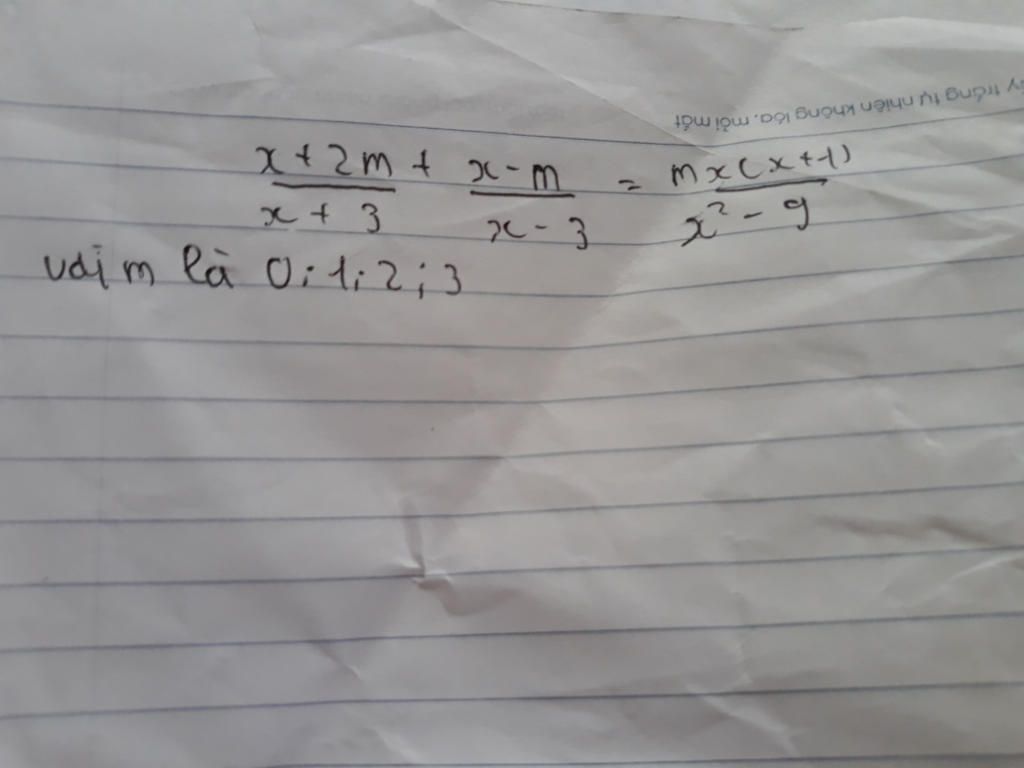 ấy trắng tự nhiên không lóa, mỏi mắt
x + 2m / x + 3 + x - m / x - 3 = mx(x+1) / x² - 9
với m là 0; 1; 2; 3